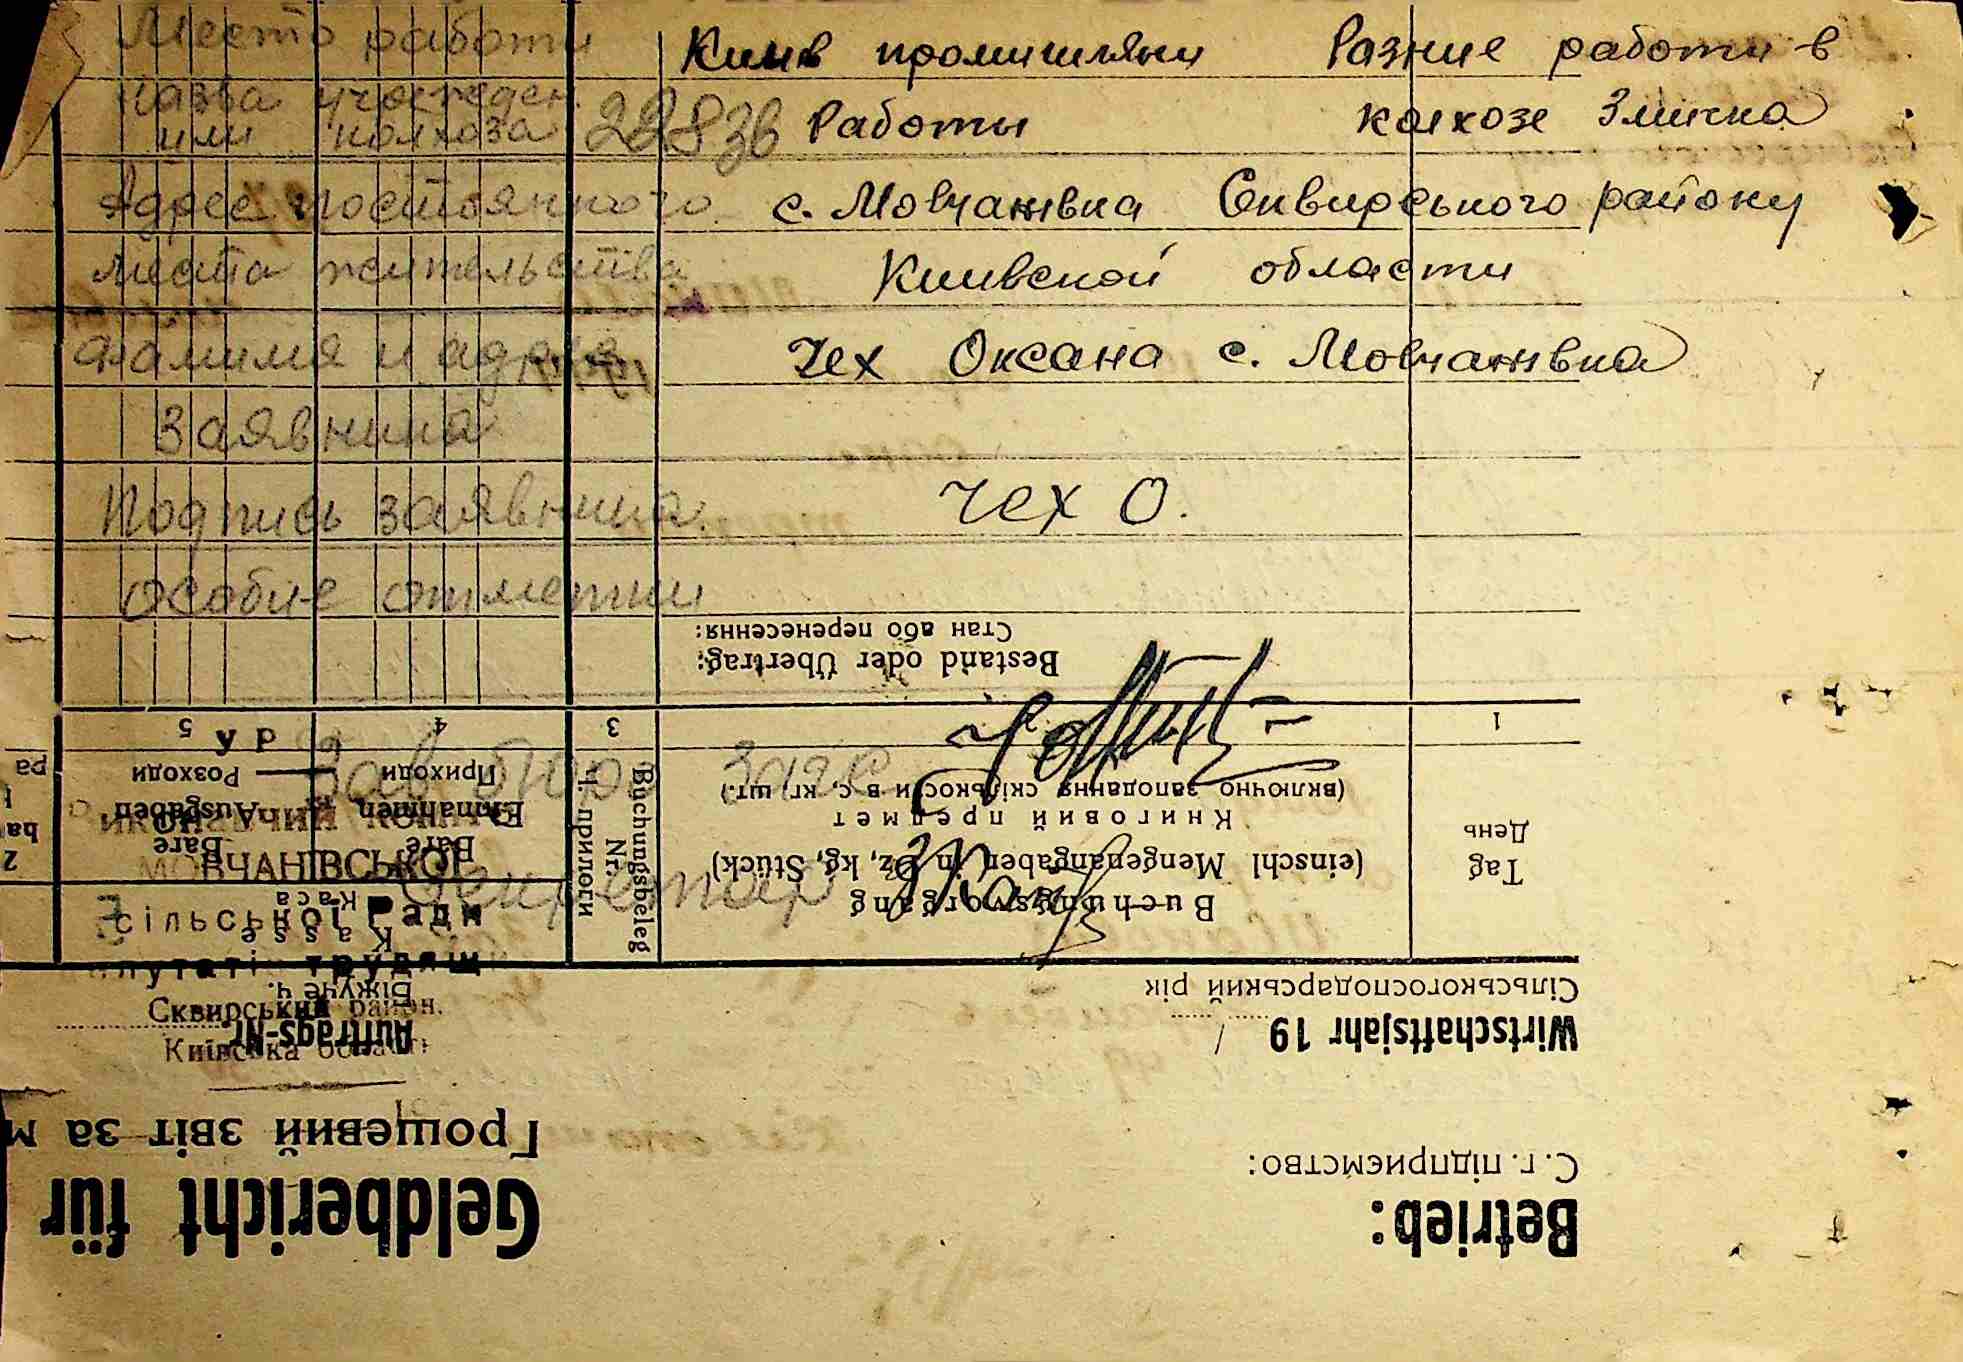 Место работи Киив промишляни Разние работи в
назва учрежден.
или колхоза 2283в Работы колхозе Змичка
Адрес постоянного с. Мовчанивка Сквирського району
места жительства Киивской области
Фамилия и адрес Чех Оксана с. Мовчанивка
Заявника
Подпись заявника. Чех О.
особие отметки
Стан або перенесення:
Bestand oder Übertrag:
1 3 4 5
УРСР
Зав бюро Загс
Приходи Розходи
(включно заподання скількости в с, кг, шт.)
Einnahmen Ausgaben
Виконавчий комітет
Книговий предмет
Bare Bare
День
МОВЧАНІВСЬКОЇ
(einschl Mengenangaben in Dz, kg, Stück)
Tag
Секретар
Каса
Buchungsvorgang
Buchungsbeleg
Nr.
Ч. прилоги
сільської Ради
Kasse
депутатів трудящ
Біжуче ч.
Сільськогосподарський рік
Сквирський район.
Auftrags-Nr.
Wirtschaftsjahr 19 /
Київська області
Грошевий звіт за м
С. г. підприємство:
Geldbericht für
Betrieb: